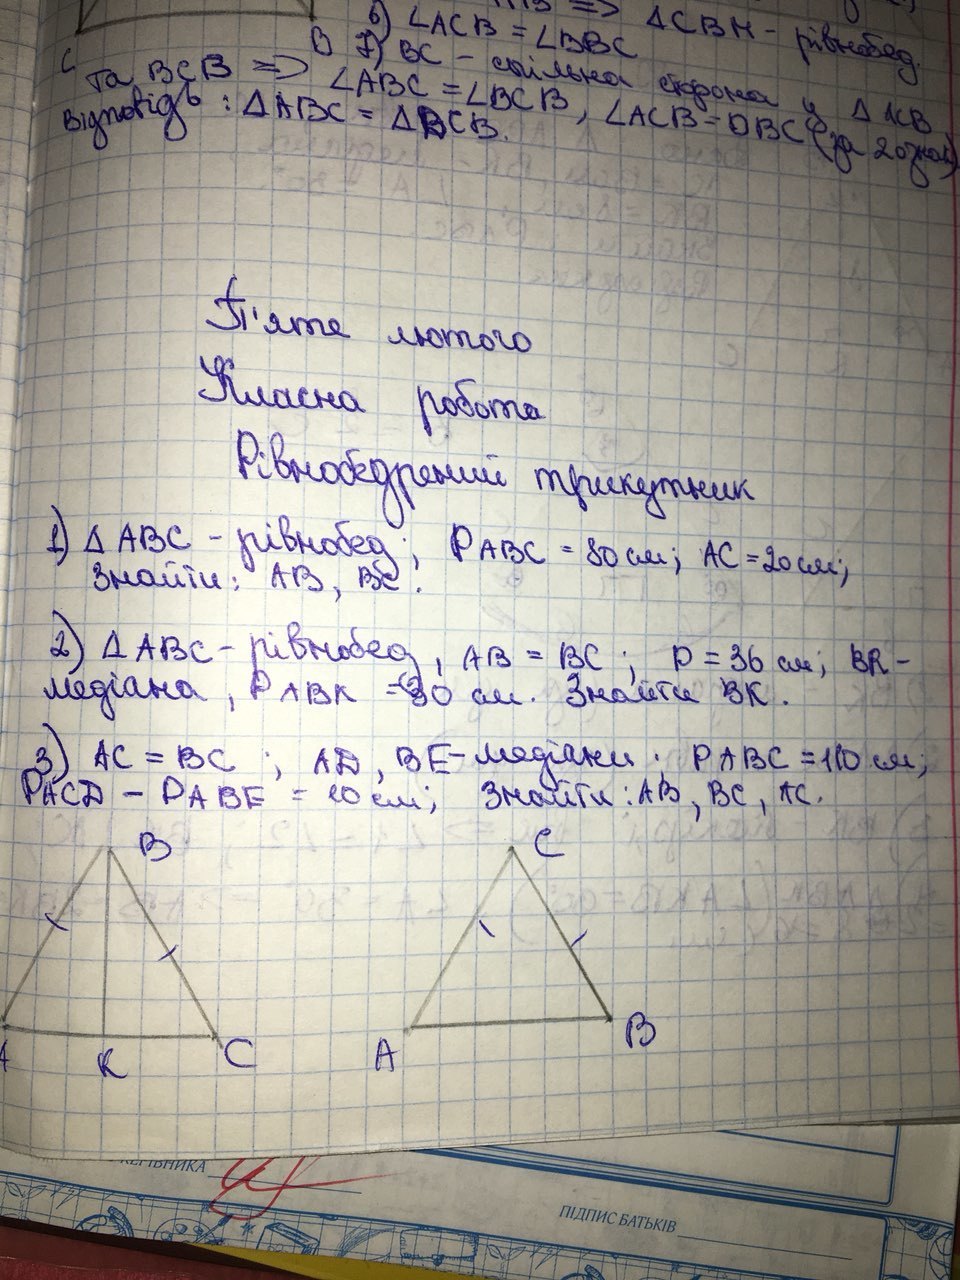 6) ∠ACB = ∠DBC => ΔCBH - рівнобед.
C
B
7) BC - спільна сторона у ΔACB
та BCB => ∠ABC = ∠BCB, ∠ACB = DBC (за 2 озн.)
Відповідь: ΔABC = ΔBCB.
П'яте лютого
Класна робота
Рівнобедрений трикутник
1) ΔABC - рівнобед; PABC = 80 см; AC = 20 см;
знайти: AB, BC.
2) ΔABC - рівнобед, AB = BC; P = 36 см; BK -
медіана, PABK = 30 см. Знайти BK.
3) AC = BC; AD, BE - медіани. PABC = 110 см;
PACD - PABE = 10 см; Знайти: AB, BC, AC.
B
C
A
K
C
A
B
КЕРІВНИКА
ПІДПИС БАТЬКІВ